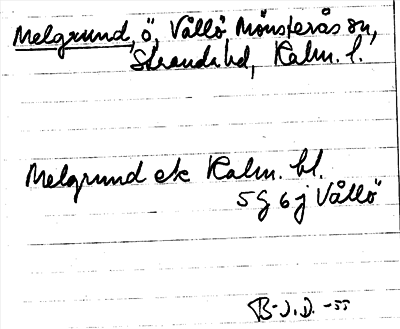 Melgrund, ö, Vållö Mönsterås sn,
Stranda hd, Kalm. l.
Melgrund ek Kalm. bl.
5 G 6 j Vållö
B-J.D. -55